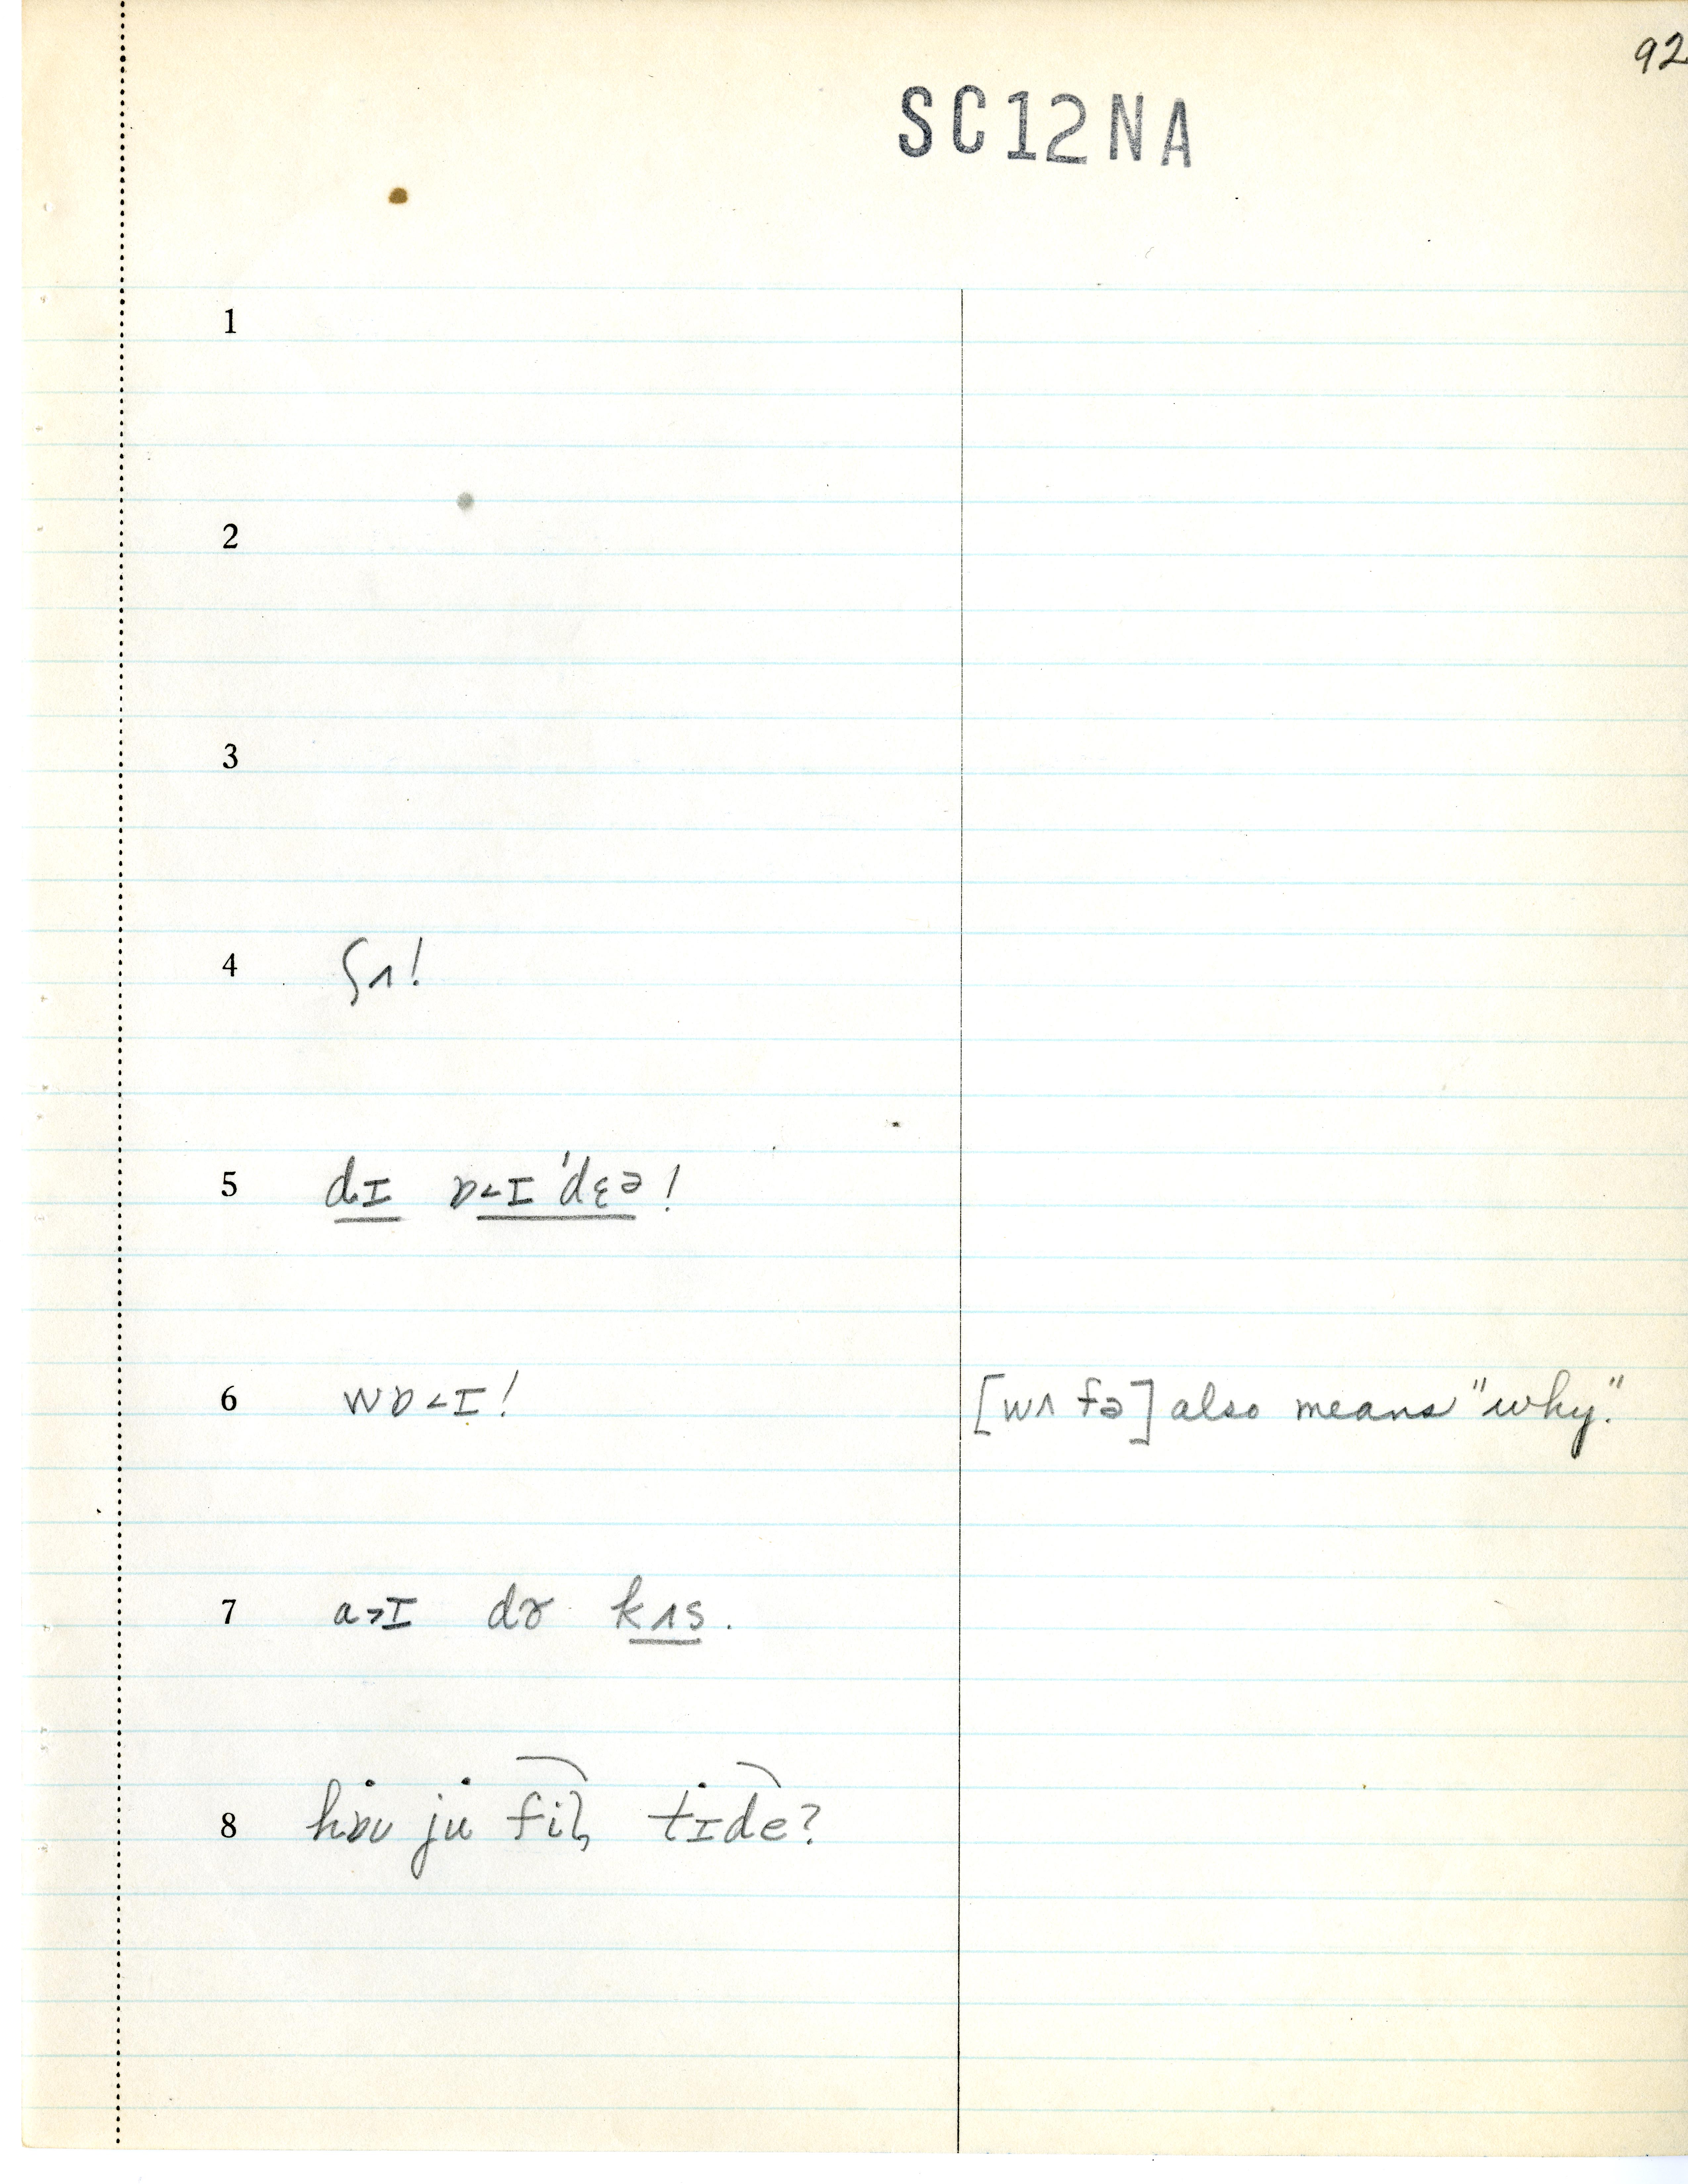 92
SC12NA
1
2
3
4 ʃʌ!
5 dɪ ɒ˂ɪˈdɛə!
6 wɒ˂ɪ! [wʌ fə] also means "why."
7 a˃ɪ dɤ kʌs.
8 hɒʊ ju fil̩ tɪde?